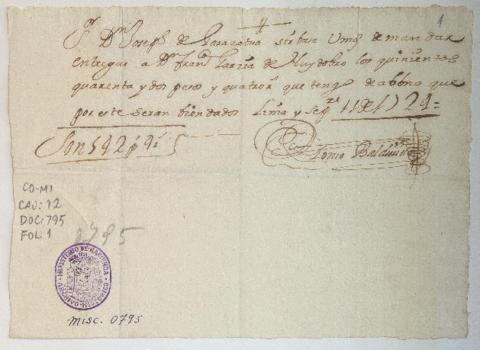 1
Sr. Dn Joseph de Garazatua sirbase Vmd de mandar
entregar a Dn Franco Garzia de Huydobro los quinientos
quarenta y dos pesos y quatro rs que tengo de abono que
por este seran bien dados Lima y 11 de 1724=
Son 542 ps 4 rs
Antonio Balduino
CO-MI
CAJ: 12
DOC: 795
FOL: 1
795
MINISTERIO DE HACIENDA
misc. 0795